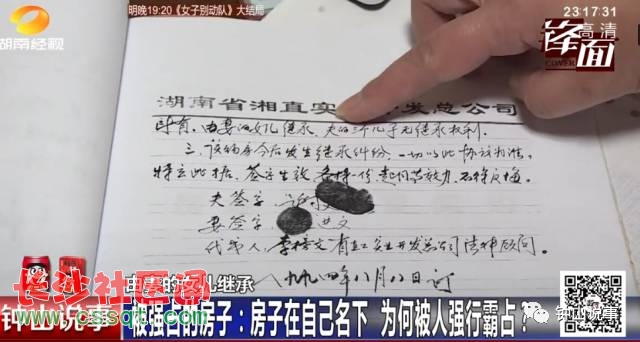 明晚19:20《女子别动队》大结局
23:17:31
湖南经视
高清
锋面
湖南省湘直实 发总公司
所有,由妻的女儿继承,夫的三个儿子无继承权利。
三、该房今后发生继承纠纷,一切以此协议为准。
特立此据,签字生效,各执一份,
夫签字
妻签字
代书人:李 文 省直实业开发总公司法律顾问。
一九九四年八月八日订
由妻的女儿继承
长沙社区通
www.cssqt.com
钟山说事
被强占的房子:房子在自己名下 为何被人强行霸占?
钟山说事